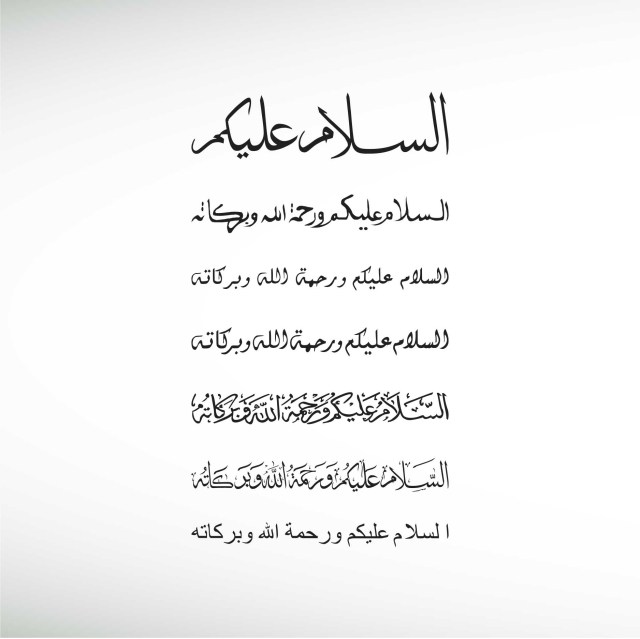 السلام عليكم
السلام عليكم ورحمة الله وبركاته
السلام عليكم ورحمة الله وبركاته
السلام عليكم ورحمة الله وبركاته
السَّلَامُ عَلَيْكُمْ وَرَحْمَةُ اللَّهِ وَبَرَكَاتُهُ
السَّلَامُ عَلَيْكُمْ وَرَحْمَةُ اللَّهِ وَبَرَكَاتُهُ
السلام عليكم ورحمة الله وبركاته